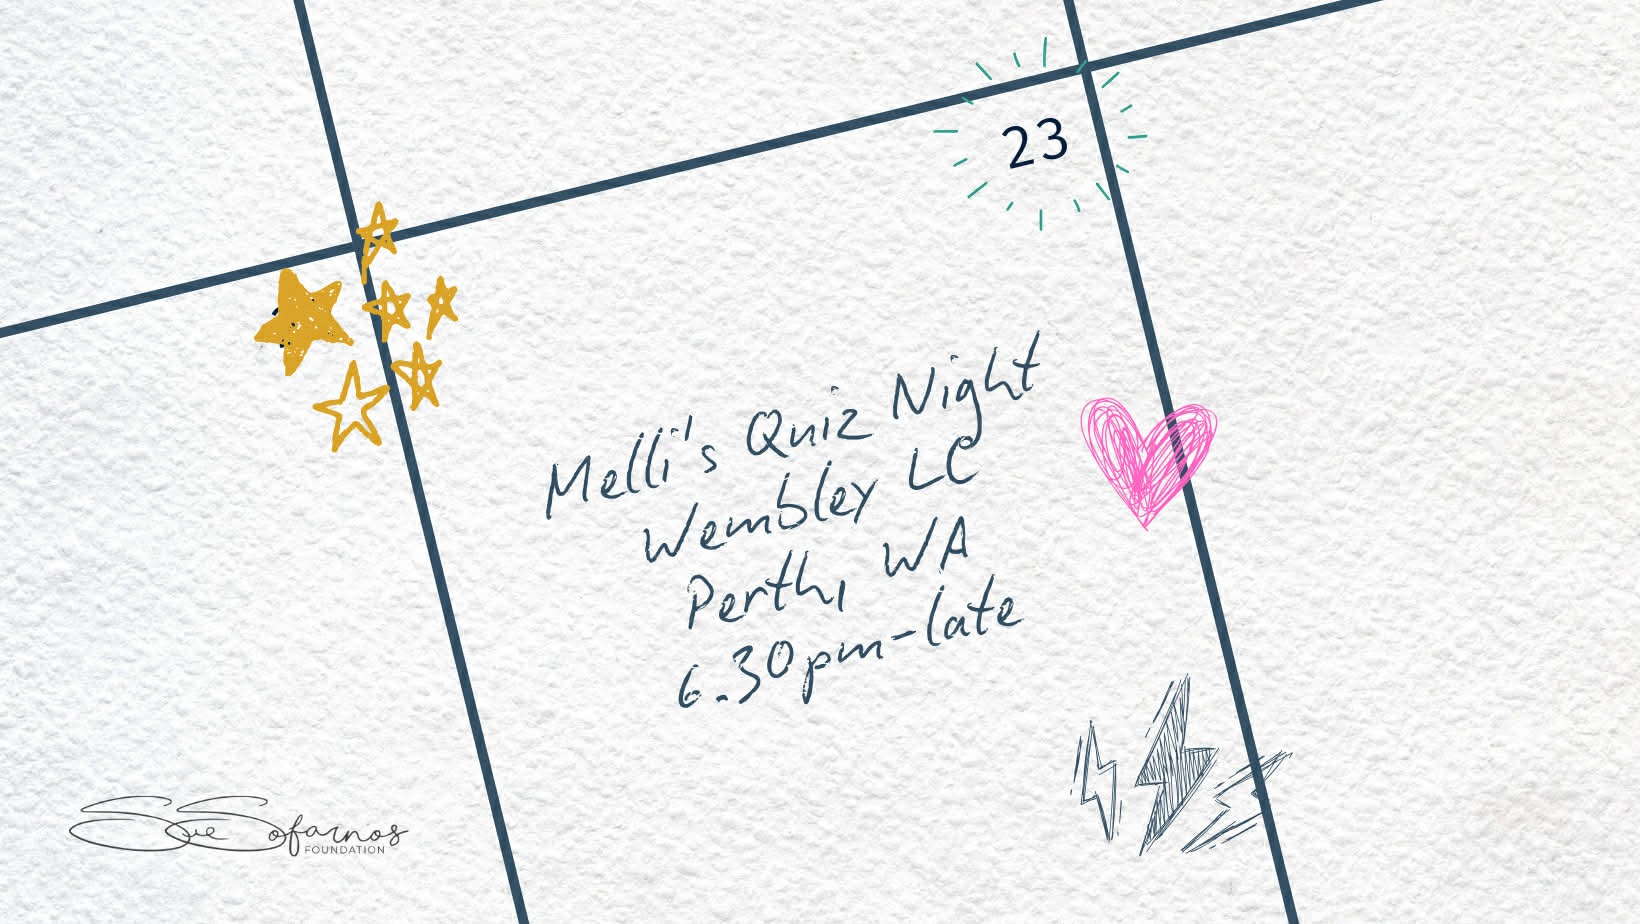 23
Melli's Quiz Night
Wembley LC
Perth, WA
6.30pm-late
Sue Sofarnos
FOUNDATION